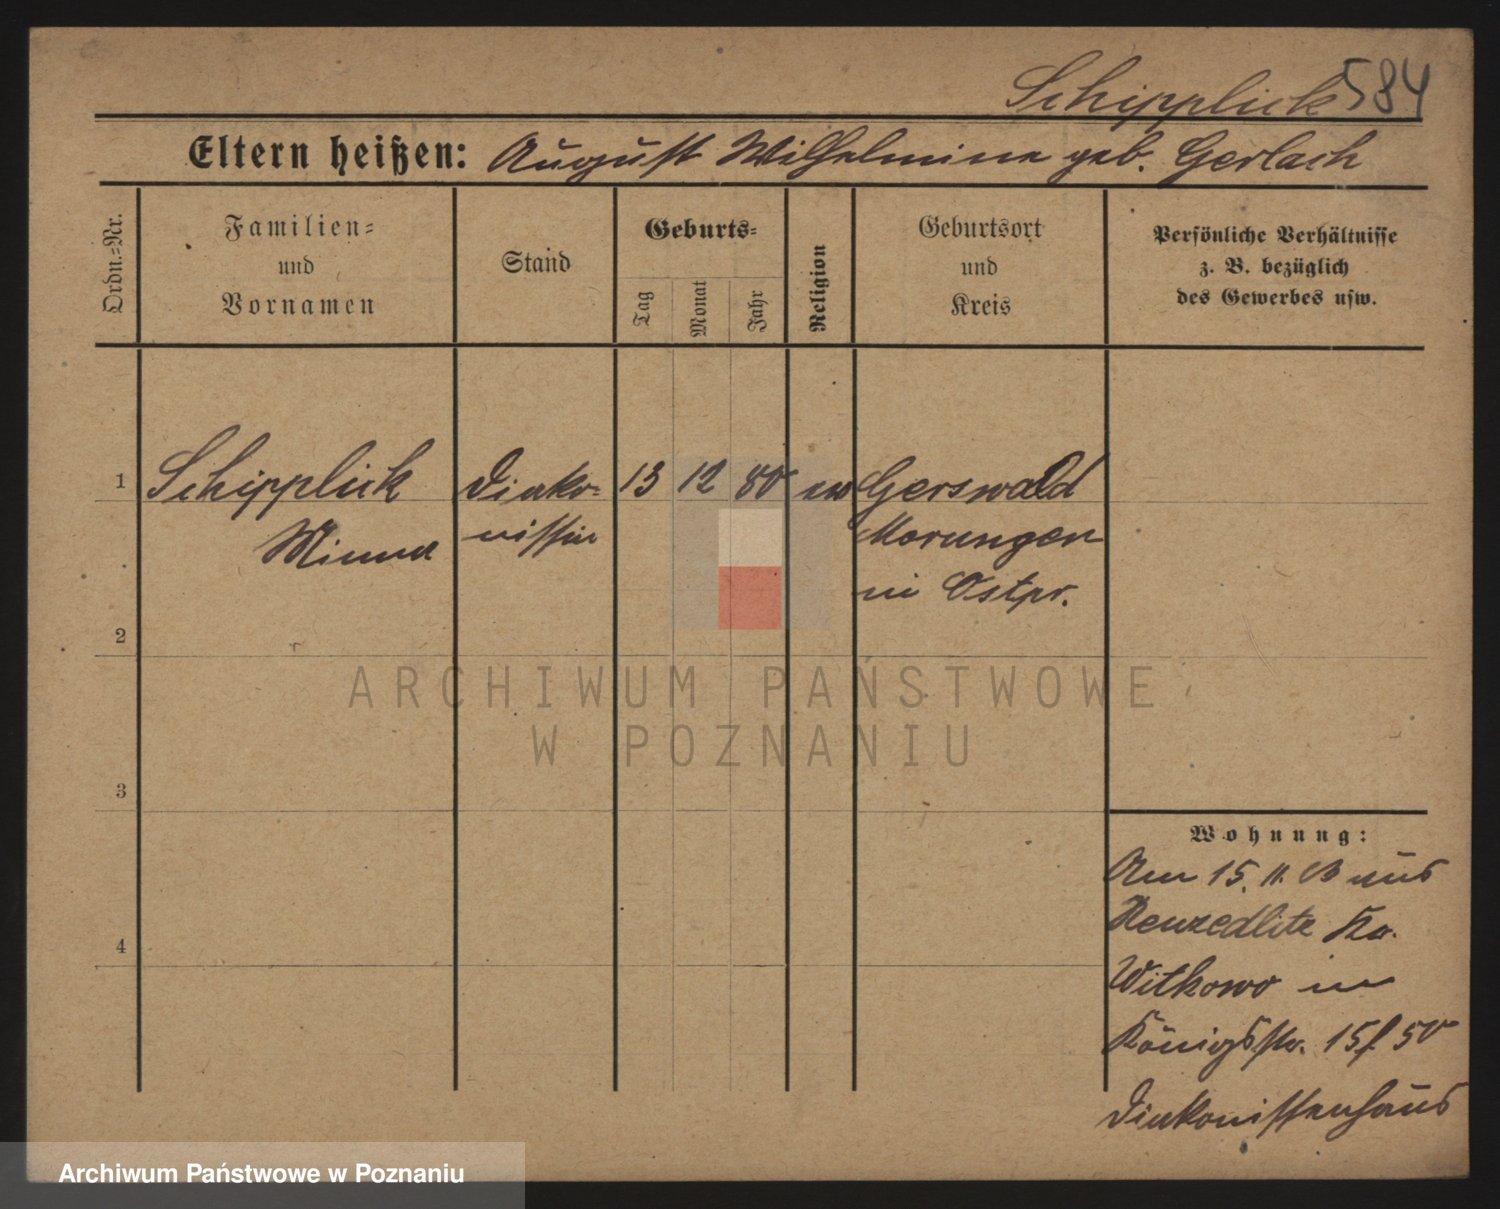 Schipplick 584
Eltern heißen: August Wilhelmine geb. Gerlach
Ordn.-Nr.
Familien-
und
Vornamen
Stand
Geburts-
Tag
Monat
Jahr
Religion
Geburtsort
und
Kreis
Persönliche Verhältnisse
z. B. bezüglich
des Gewerbes usw.
1 Schipplick Diako- 13 12 80 ev Gerswald
Minna nissin Morungen
in Ostpr.
2
ARCHIWUM PAŃSTWOWE
W POZNANIU
3
Wohnung:
Am 15. 11. aus
Kr.
4
Witkowo in
Königsstr. 15
Diakonissenhaus
Archiwum Państwowe w Poznaniu